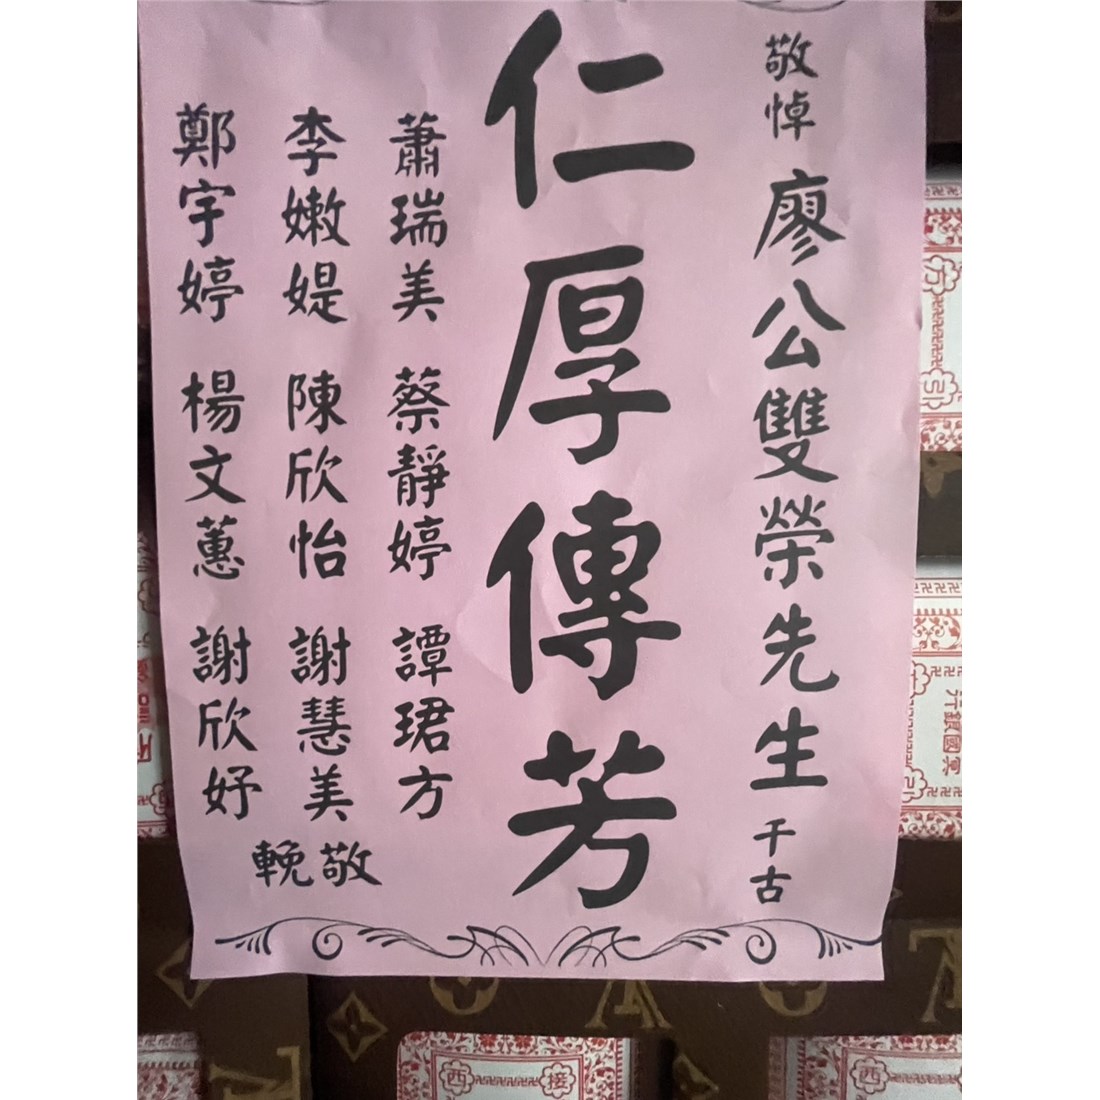 敬悼 廖公雙榮先生 千古
仁厚傳芳
蕭瑞美 蔡靜婷 譚珺方
李嫩媞 陳欣怡 謝慧美
鄭宇婷 楊文蕙 謝欣妤
敬輓
西 接
西